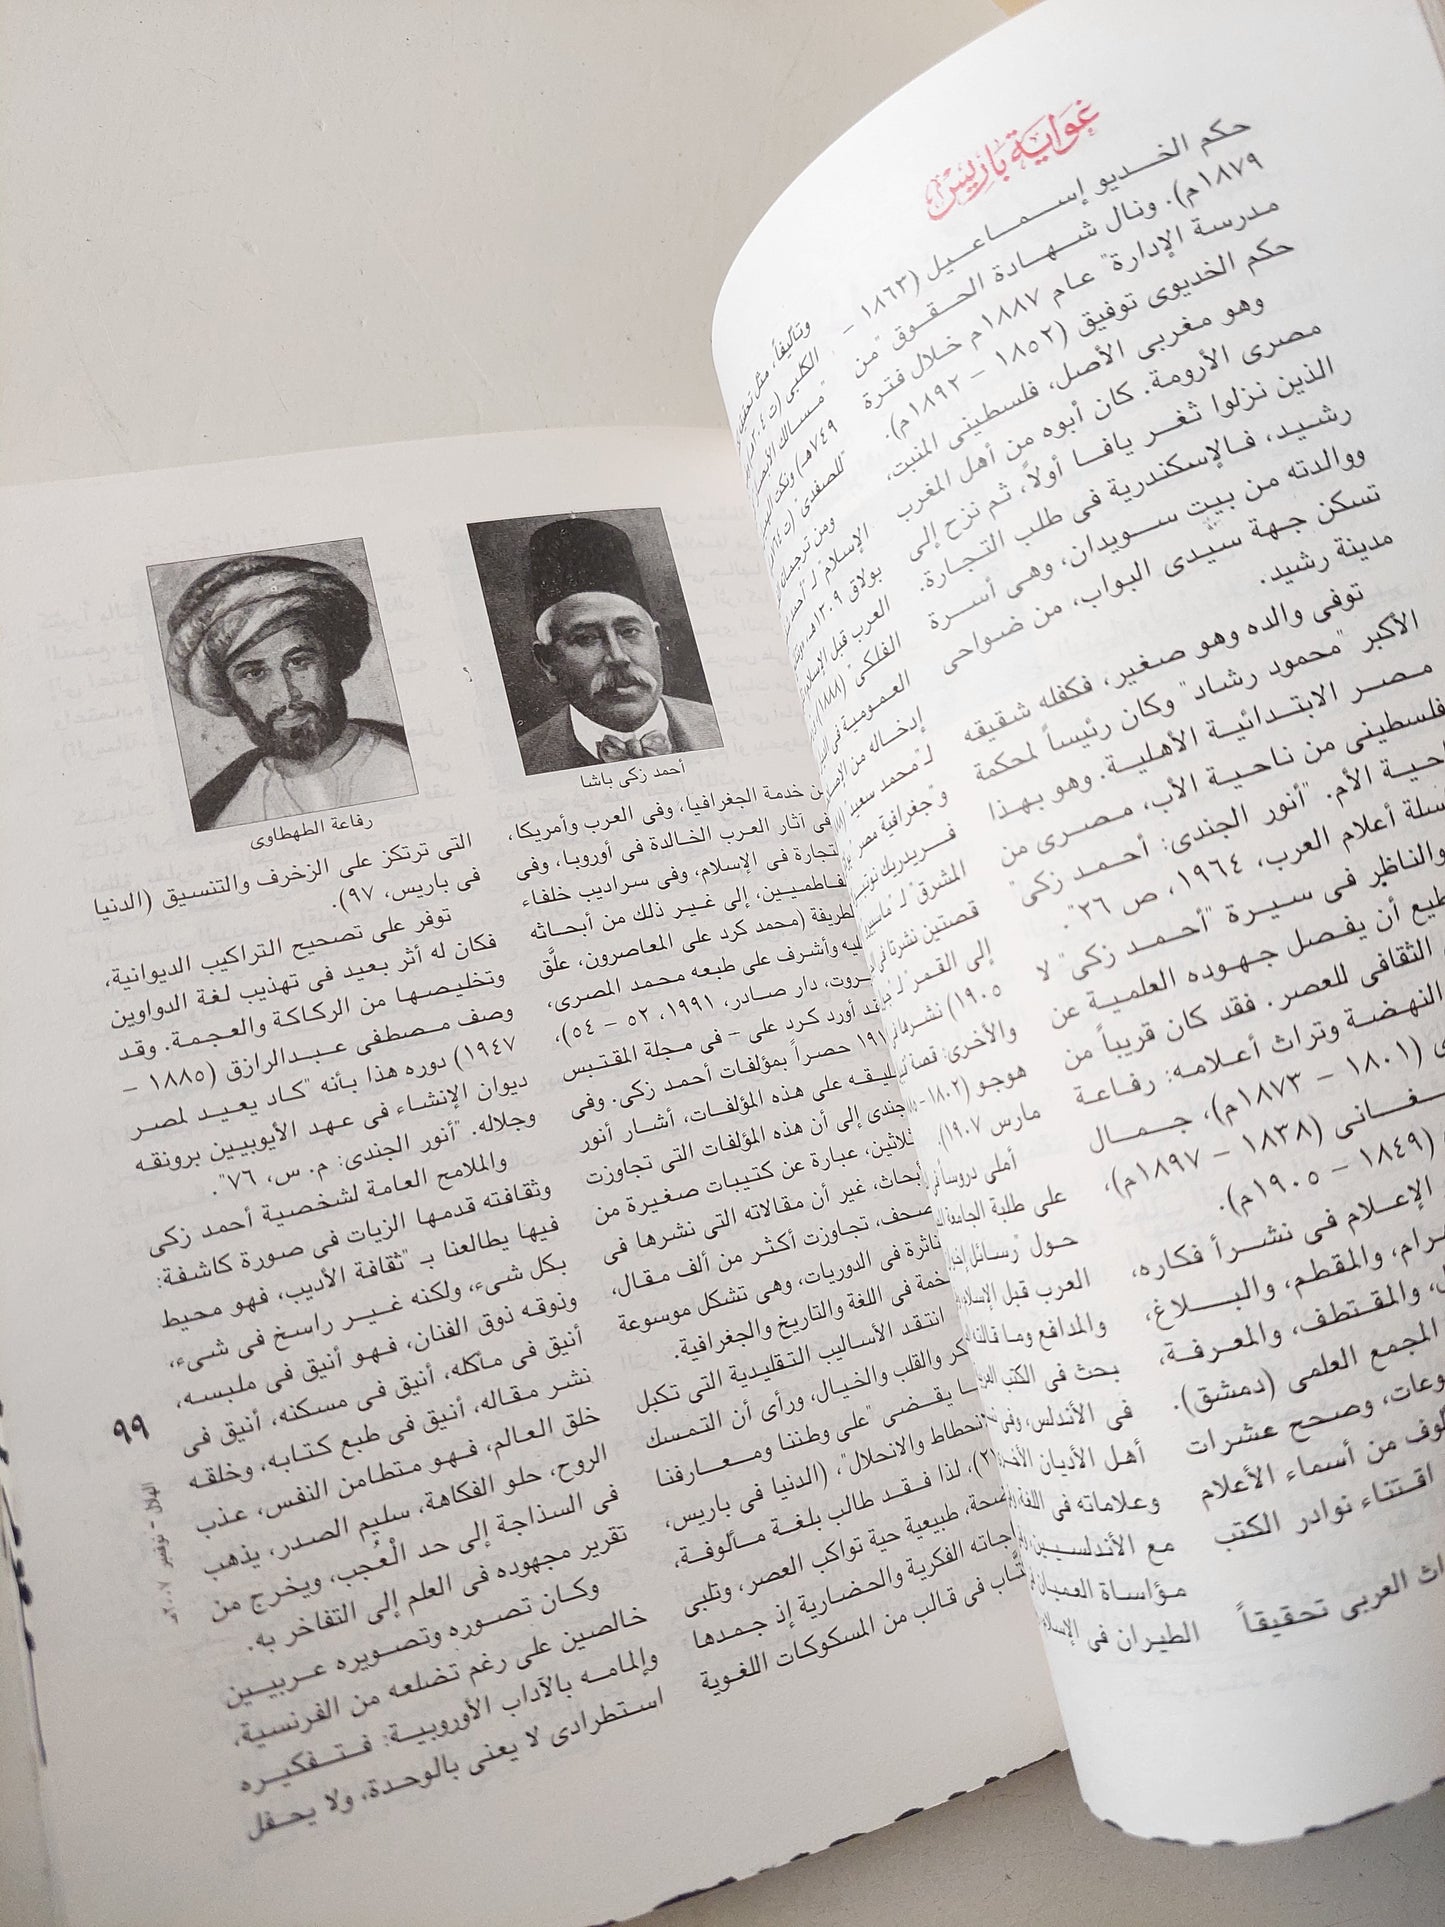 غواية باريس
حكم الخديو إسماعيل (١٨٦٣ -
١٨٧٩م). ونال شهادة الحقوق "من
مدرسة الإدارة" عام ١٨٨٧م خلال فترة
حكم الخديوى توفيق (١٨٥٢ - ١٨٩٢م).
وهو مغربى الأصل، فلسطينى المنبت،
مصرى الأرومة. كان أبوه من أهل المغرب
الذين نزلوا ثغر يافا أولاً، ثم نزح إلى
رشيد، فالإسكندرية فى طلب التجارة.
ووالدته من بيت سويدان، وهى أسرة
تسكن جهة سيدى البواب، من ضواحى
مدينة رشيد.
توفى والده وهو صغير، فكفله شقيقه
الأكبر "محمود رشاد" وكان رئيساً لمحكمة
مصر الابتدائية الأهلية. وهو بهذا
فلسطينى من ناحية الأب، مصرى من
الأم. "أنور الجندى: أحمد زكى"
أعلام العرب، ١٩٦٤، ص ٢٦".
والناظر فى سيرة "أحمد زكى" لا
أن يفصل جهوده العلمية عن
الثقافى للعصر. فقد كان قريباً من
النهضة وتراث أعلامه: رفاعة
(١٨٠١ - ١٨٧٣م)، جمال
(١٨٣٨ - ١٨٩٧م)،
(١٨٤٩ - ١٩٠٥م).
الإعلام فى نشر أفكاره،
والمقطم، والبلاغ،
والمقتطف، والمعرفة،
المجمع العلمى (دمشق).
وصحح عشرات
من أسماء الأعلام
اقتناء نوادر الكتب
العربى تحقيقاً
وتأليفاً، مثل
الكلبى
"مسالك
٧٤٩هـ) ونكت
للصفدى
ومن ترجمات
الإسلام" لـ "أحمد
بولاق ١٣٠٩هـ،
العرب قبل الإسلام
الفلكى" (١٨٨٨)
العمومية فى
إدخاله من
لـ"محمد سعيد
و"جغرافية مصر
فريدريك
المشرق" لـ
قصتين نشرتا فى
إلى القمر" لـ
١٩٠٥)
والأخرى: قصة
هوجو (١٨٠٢ -
مارس ١٩٠٧).
أملى دروساً
على طلبة الجامعة
حول "رسائل
العرب قبل الإسلام
والمدافع وما
بحث فى الكتب
فى الأندلس، وفى
أهل الأديان
وعلاماته فى اللغة
مع الأندلسيين
مؤاساة العميان
الطيران فى الإسلام
أحمد زكى باشا
خدمة الجغرافيا، وفى العرب وأمريكا،
فى آثار العرب الخالدة فى أوروبا، وفى
التجارة فى الإسلام، وفى سراديب خلفاء
الفاطميين، إلى غير ذلك من أبحاثه
الطريفة (محمد كرد على المعاصرون، علَّق
عليه وأشرف على طبعه محمد المصرى،
بيروت، دار صادر، ١٩٩١، ٥٢ - ٥٤)،
وقد أورد كرد على - فى مجلة المقتبس
حصراً بمؤلفات أحمد زكى. وفى
على هذه المؤلفات، أشار أنور
الجندى إلى أن هذه المؤلفات التى تجاوزت
الثلاثين، عبارة عن كتيبات صغيرة من
غير أن مقالاته التى نشرها فى
الصحف، تجاوزت أكثر من ألف مقال،
فى الدوريات، وهى تشكل موسوعة
ضخمة فى اللغة والتاريخ والجغرافية.
انتقد الأساليب التقليدية التى تكبل
والقلب والخيال، ورأى أن التمسك
يقضى "على وطننا ومعارفنا
والانحلال"، (الدنيا فى باريس،
لذا فقد طالب بلغة مألوفة،
طبيعية حية تواكب العصر، وتلبى
الفكرية والحضارية إذ جمدها
الكتَّاب فى قالب من المسكوكات اللغوية
رفاعة الطهطاوى
التى ترتكز على الزخرف والتنسيق (الدنيا
فى باريس، ٩٧).
توفر على تصحيح التراكيب الديوانية،
فكان له أثر بعيد فى تهذيب لغة الدواوين
وتخليصها من الركاكة والعجمة. وقد
وصف مصطفى عبدالرازق (١٨٨٥ -
١٩٤٧) دوره هذا بأنه "كاد يعيد لمصر
ديوان الإنشاء فى عهد الأيوبيين برونقه
وجلاله. "أنور الجندى: م. س، ٧٦".
والملامح العامة لشخصية أحمد زكى
وثقافته قدمها الزيات فى صورة كاشفة:
فيها يطالعنا بـ "ثقافة الأديب، فهو محيط
بكل شىء، ولكنه غير راسخ فى شىء،
وذوقه ذوق الفنان، فهو أنيق فى ملبسه،
أنيق فى مأكله، أنيق فى مسكنه، أنيق فى
نشر مقاله، أنيق فى طبع كتابه، وخلقه
خلق العالم، فهو متطامن النفس، عذب
الروح، حلو الفكاهة، سليم الصدر، يذهب
فى السذاجة إلى حد الْعُجب، ويخرج من
تقرير مجهوده فى العلم إلى التفاخر به.
وكان تصوره وتصويره عربيين
خالصين على رغم تضلعه من الفرنسية،
وإلمامه بالآداب الأوروبية: فتفكيره
استطرادى لا يعنى بالوحدة، ولا يحفل
٩٩
الهلال - نوفمبر ٢٠٠٧مـ